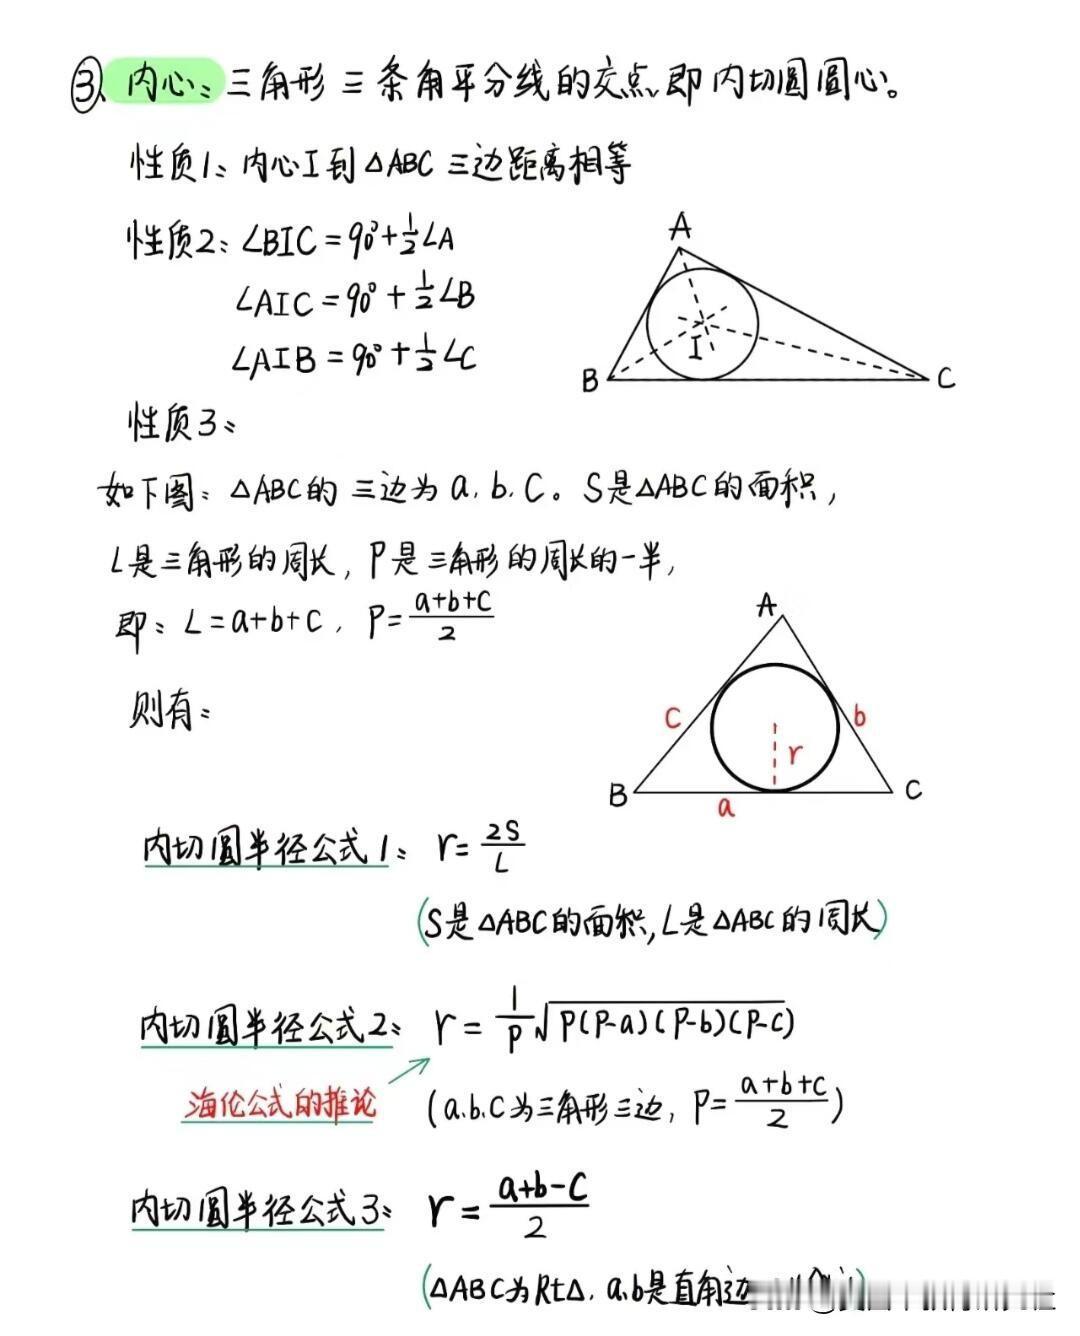 ③、内心：三角形三条角平分线的交点，即内切圆圆心。
性质1：内心I到△ABC三边距离相等
性质2：∠BIC=90°+½∠A
∠AIC=90°+½∠B
∠AIB=90°+½∠C
A
B
I
C
性质3：
如下图：△ABC的三边为a.b.c。S是△ABC的面积，
L是三角形的周长，P是三角形的周长的一半，
即：L=a+b+c，P=(a+b+c)/2
则有：
A
c
b
r
B
a
C
内切圆半径公式1：r=2S/L
(S是△ABC的面积,L是△ABC的周长)
内切圆半径公式2：r=1/P√P(P-a)(P-b)(P-c)
海伦公式的推论
(a.b.c为三角形三边，P=(a+b+c)/2)
内切圆半径公式3：r=(a+b-c)/2
(△ABC为Rt△.a.b是直角边